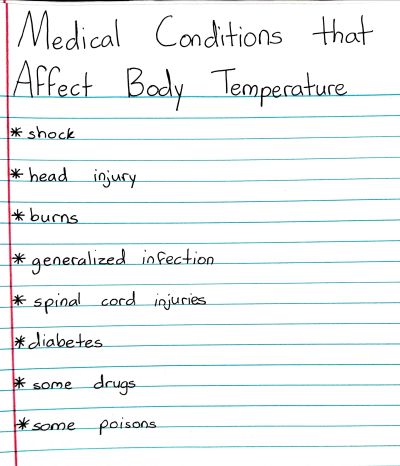 Medical Conditions that
Affect Body Temperature
* shock
* head injury
* burns
* generalized infection
* spinal cord injuries
* diabetes
* some drugs
* some poisons